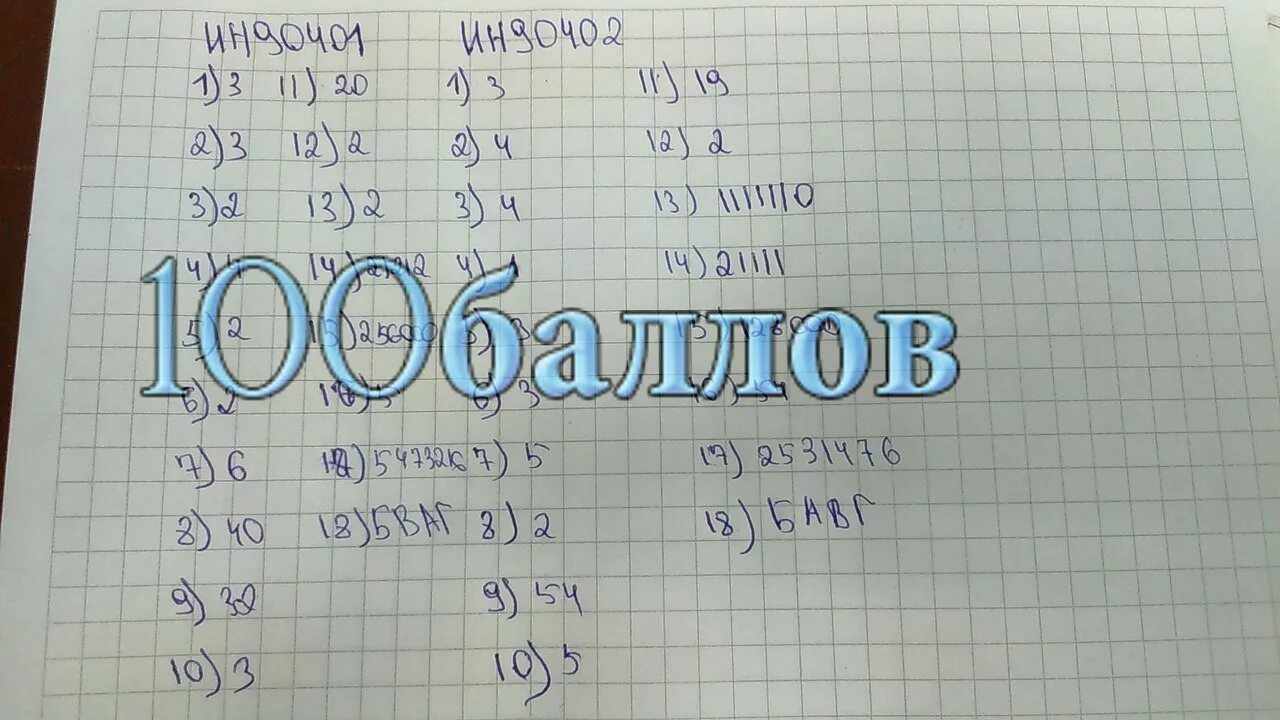 ИН90401 ИН90402
1) 3 11) 20 1) 3 11) 19
2) 3 12) 2 2) 4 12) 2
3) 2 13) 2 3) 4 13) 1111110
4) 14) 4) 14) 21111
100баллов
5) 2 5) 3 15)
6) 2 6) 3
7) 6 7) 5 17) 2531476
8) 40 18) БВАГ 8) 2 18) БАВГ
9) 9) 54
10) 3 10) 5